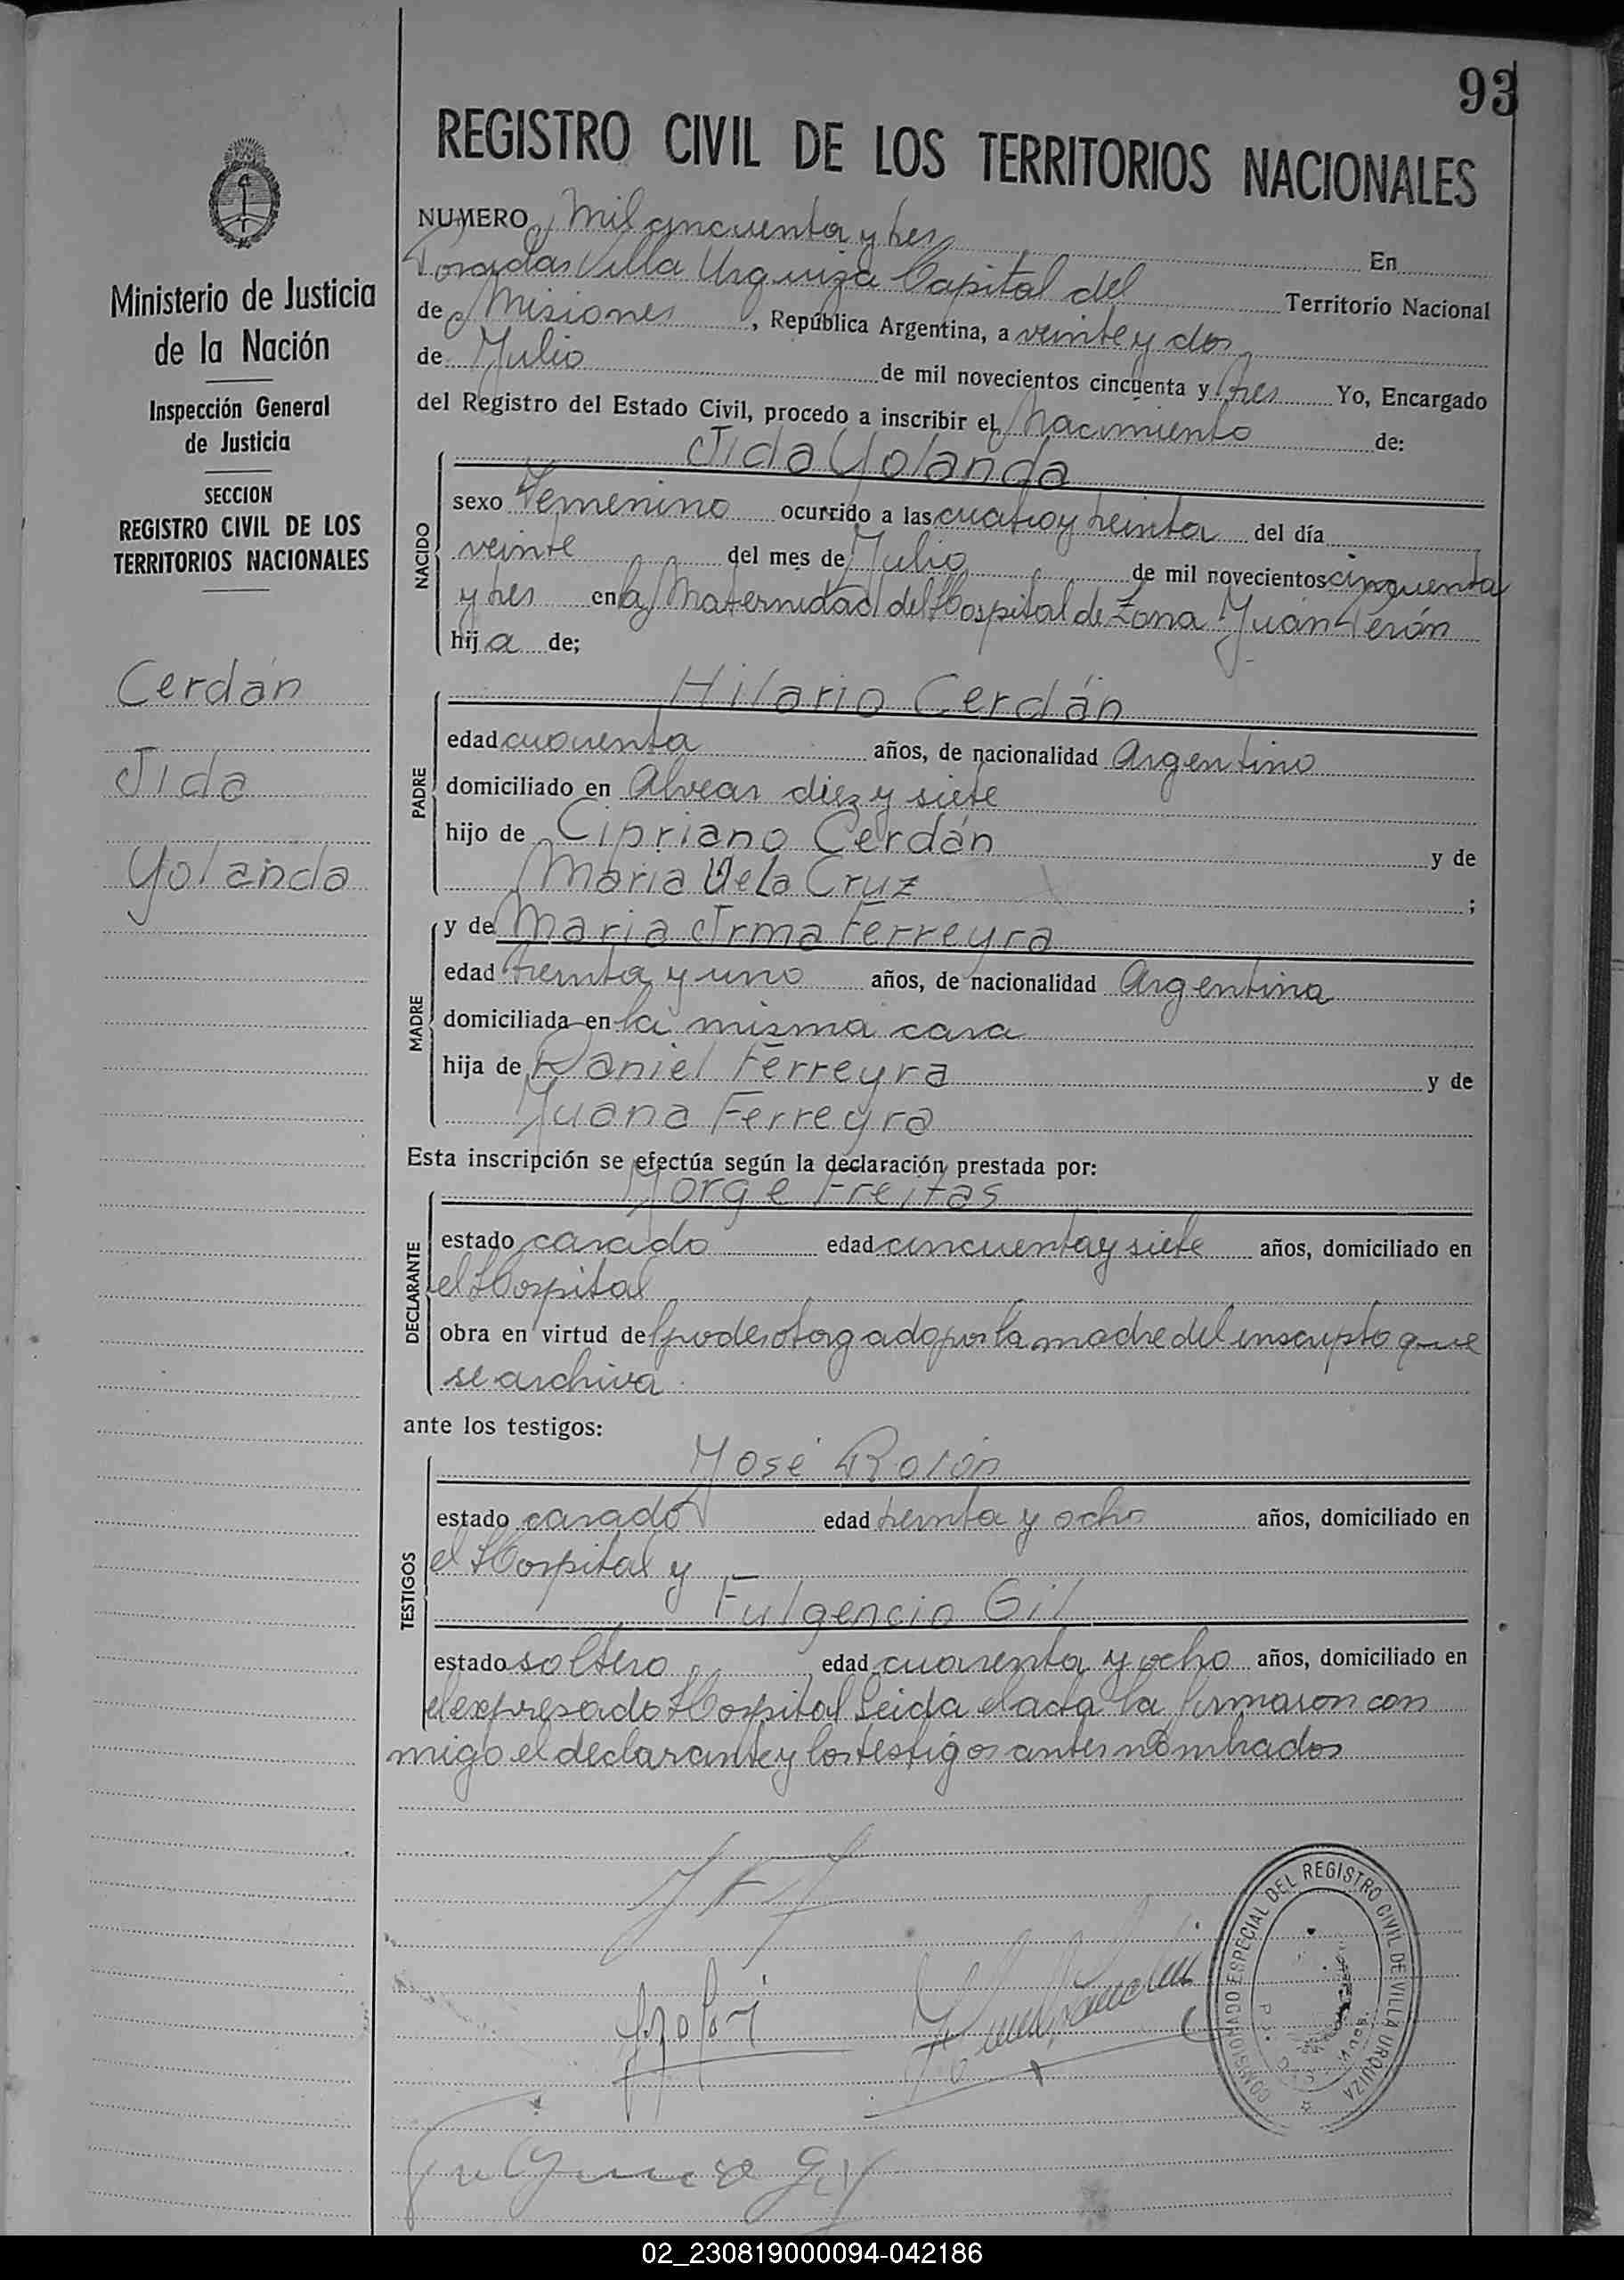 93
REGISTRO CIVIL DE LOS TERRITORIOS NACIONALES
Ministerio de Justicia
de la Nación
Inspección General
de Justicia
SECCION
REGISTRO CIVIL DE LOS
TERRITORIOS NACIONALES
Cerdán
Jida
Yolanda
NUMERO Mil cincuenta y tres En
Posadas Villa Urquiza Capital del Territorio Nacional
de Misiones, República Argentina, a veinte y dos
de Julio de mil novecientos cincuenta y tres Yo, Encargado
del Registro del Estado Civil, procedo a inscribir el Nacimiento de:
NACIDO
Jida Yolanda
sexo Femenino ocurrido a las cuatro y treinta del día
veinte del mes de Julio de mil novecientos cincuenta
y tres en la Maternidad del Hospital de Zona Juan Perón
hija de;
PADRE
Hilario Cerdán
edad cuarenta años, de nacionalidad Argentino
domiciliado en Alvear diez y siete
hijo de Cipriano Cerdán y de
Maria Vela Cruz ;
MADRE
y de Maria Irma Ferreyra
edad treinta y uno años, de nacionalidad Argentina
domiciliada en la misma casa
hija de Daniel Ferreyra y de
Juana Ferreyra
Esta inscripción se efectúa según la declaración prestada por:
DECLARANTE
Jorge Freitas
estado casado edad cincuenta y siete años, domiciliado en
el Hospital
obra en virtud del poder otorgado por la madre del inscripto que
se archiva
ante los testigos:
TESTIGOS
José Rolón
estado casado edad treinta y ocho años, domiciliado en
el Hospital y
Fulgencio Gil
estado soltero edad cuarenta y ocho años, domiciliado en
el expresado Hospital Leida el acta la firmaron con
migo el declarante y los testigos antes nombrados
COMISIONADO ESPECIAL DEL REGISTRO CIVIL DE VILLA URQUIZA
02_230819000094-042186